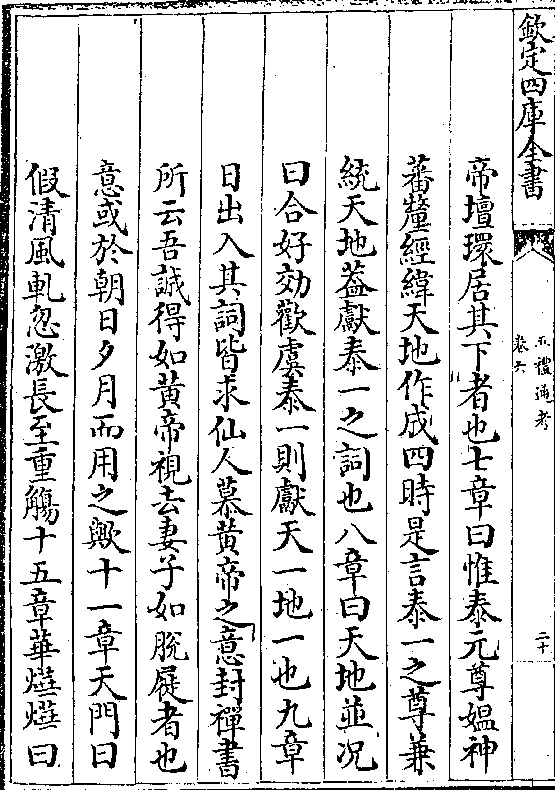 欽定四庫全書
五禮通考
卷六
二十
帝壇環居其下者也七章曰惟泰元尊媼神
蕃釐經緯天地作成四時是言泰一之尊兼
統天地葢獻泰一之詞也八章曰天地並况
曰合好効歡虞泰一則獻天一地一也九章
日出入其詞皆求仙人慕黄帝之意封禪書
所云吾誠得如黄帝視去妻子如脫屣者也
意或於朝日夕月而用之歟十一章天門曰
假清風軋忽激長至重觴十五章華爗爗曰